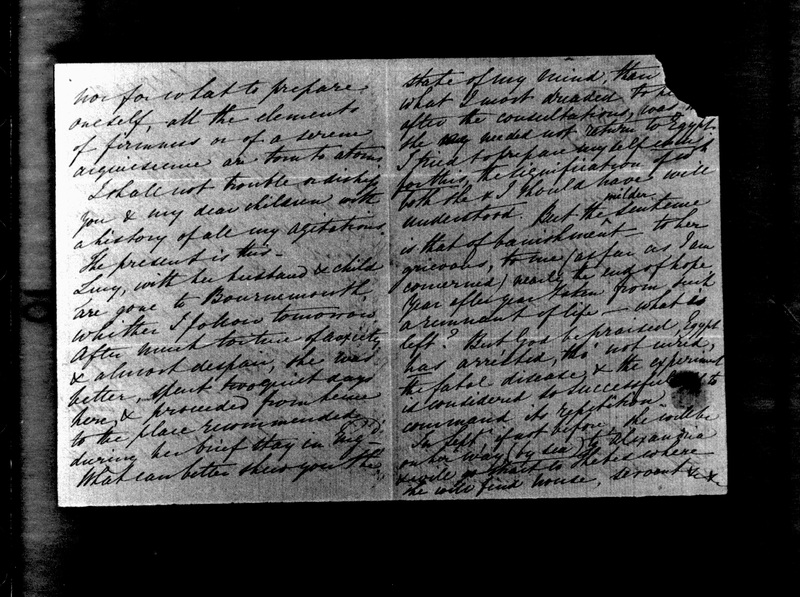 nor for what to prepare
oneself, all the elements
of firmness or of a serene
acquiescence are torn to atoms.
I shall not trouble or disturb
you & my dear children with
a history of all my agitations.
The present is this—
Lucy, with her husband & child
are gone to Bournemouth,
whither I follow tomorrow
After much torture of anxiety
& almost despair, she was
better, spent two quiet days
here, & proceeded from hence
to the place recommended
during her brief stay in Eng—
What can better shew you the
state of my mind, than
what I most dreaded to
after the consultations, was
she needed not return to Egypt.
I tried to prepare myself
for this, the signification of wch
both she & I should have well
understood. But the milder sentence
is that of banishment to her
grievous, to me (as far as I am
concerned) nearly the end of hope
Year after year taken from such
a remnant of life — what is
left? But God be praised, Egypt
has arrested, tho' not cured,
the fatal disease, & the experiment
is considered so successful as to
command its repetition.
In Septr, if not before, she will be
on her way (by sea) to Alexandria
& will go strait to Thebes where
she will find house, servant &c &c